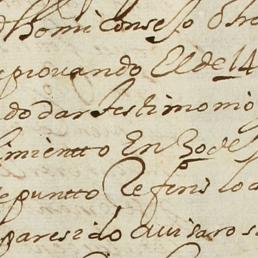 homi consejo otra
provando El de 14
do dar testimonio
cimientto En 30 de
puntto Refiris lo a
paresido avisaros